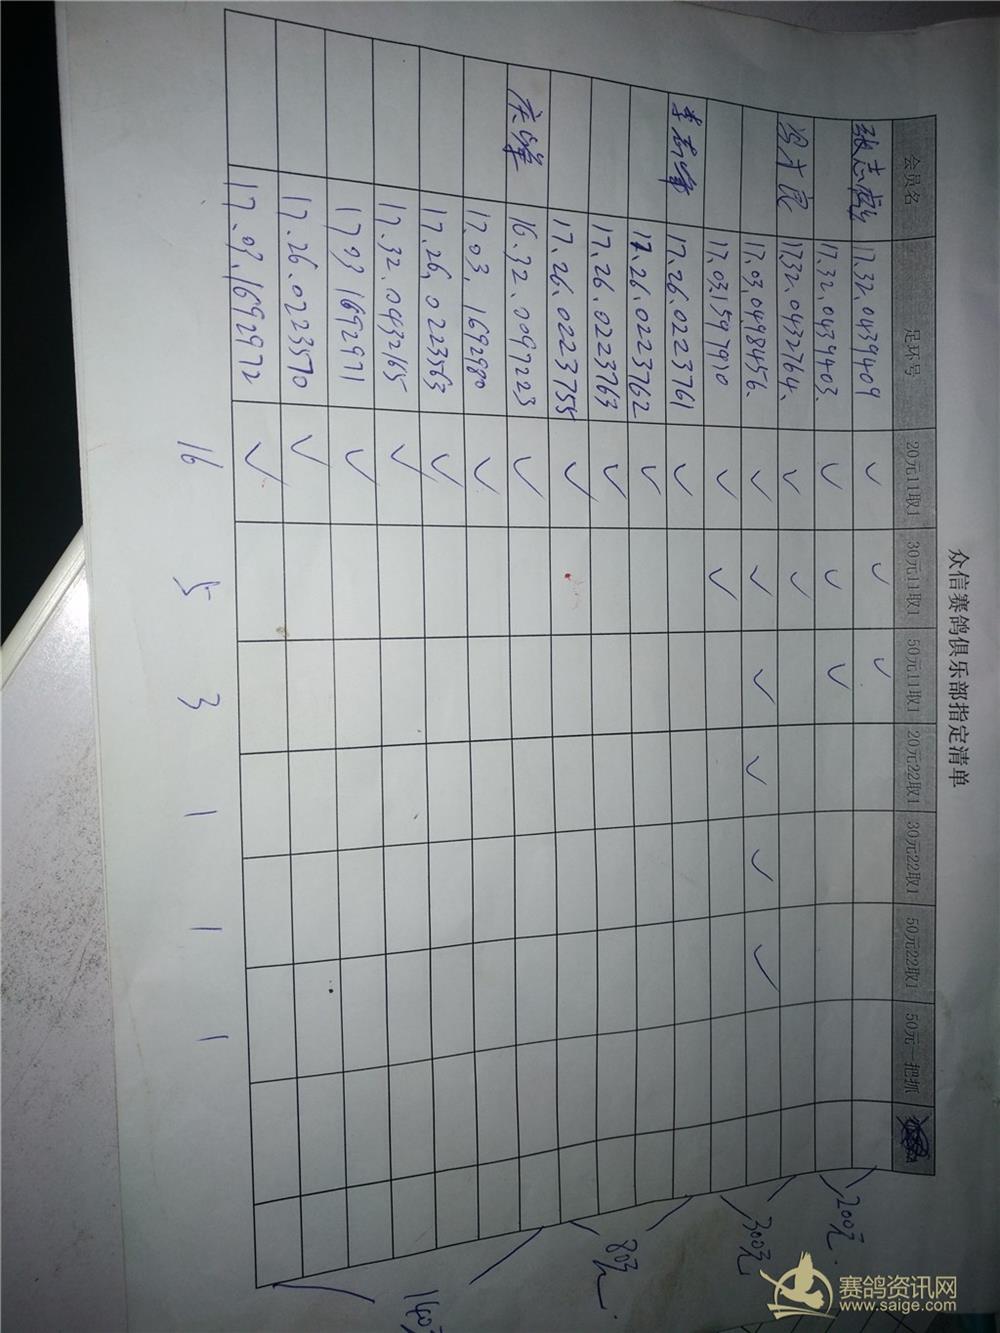 众信赛鸽俱乐部指定清单
会员名 足环号 20元11取1 30元11取1 50元11取1 20元22取1 30元22取1 50元22取1 50元一把抓
张志 17.32.0439409 ✓ ✓ ✓
17.32.0439403. ✓ ✓ ✓ 200元
17.32.0432764. ✓ ✓
17.03.0498456. ✓ ✓ ✓ ✓ ✓ ✓
17.03.1597910 ✓ ✓ 300元
17.26.0223761 ✓
17.26.0223762 ✓
17.26.0223763 ✓
17.26.0223755 ✓ 80元
16.32.0097223 ✓
17.03.1692980 ✓
17.26.0223563 ✓
17.32.0432165 ✓
17 03 1692971 ✓
17.26.0223570 ✓
17.03.1692972 ✓ 140元
16 5 3 1 1 1
赛鸽资讯网
www.saige.com